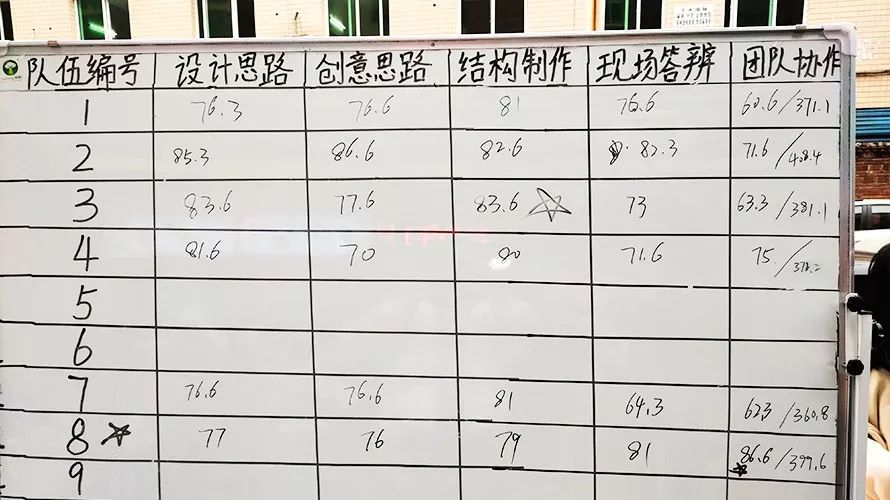 队伍编号 设计思路 创意思路 结构制作 现场答辨 团队协作
1 76.3 76.6 81 76.6 60.6/371.1
2 85.3 86.6 82.6 82.3 71.6/408.4
3 83.6 77.6 83.6 73 63.3/381.1
4 81.6 70 80 71.6 75./378.2
5
6
7 76.6 76.6 81 64.3 623/360.8
8 77 76 79 81 86.6/399.6
9